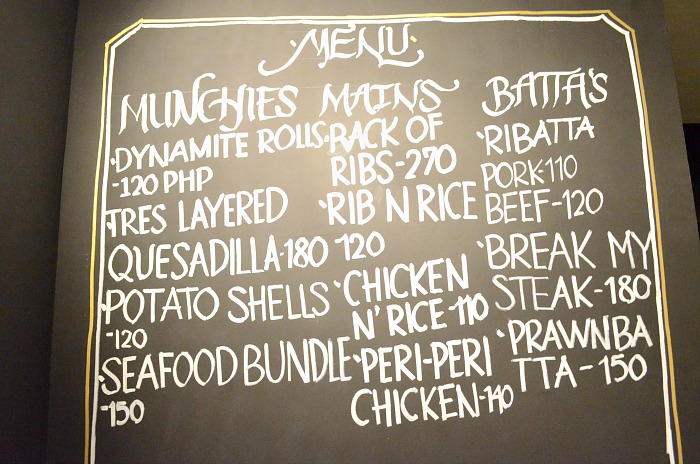 MENU
MUNCHIES
·DYNAMITE ROLLS
-120 PHP
·TRES LAYERED
QUESADILLA-180
·POTATO SHELLS
-120
·SEAFOOD BUNDLE
-150
MAINS
·RACK OF
RIBS-270
·RIB N RICE
120
·CHICKEN
N' RICE-110
·PERI-PERI
CHICKEN-140
BATTA'S
·RIBATTA
PORK-110
BEEF-120
·BREAK MY
STEAK-180
·PRAWNBA
TTA-150